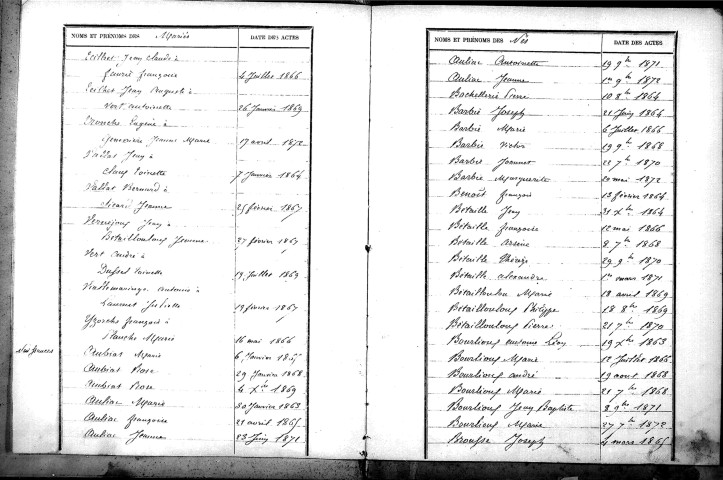 NOMS ET PRÉNOMS DES Mariés DATE DES ACTES
Teilhet Jean Claude à
Fauré françoise 4 Juillet 1866
Teilhet Jean Auguste à
Vert antoinette 26 Janvier 1869
Tronche Eugène à
Geneviève Jeanne Marie 17 avril 1872
Vallat Jean à
Claux Toinette 7 Janvier 1864
Vallat Bernard à
Sicard Jeanne 25 février 1867
Verrejoux Jean à
Bétailloulou Jeanne 27 février 1867
Vert André à
Toinette 19 Juillet 1869
antoine à
Juliette 19 février 1867
françois à
Planche Marie 16 mai 1866
Naissances Aubiat Marie 6 Janvier
Aubiat Rose 29 Janvier 1868
Aubiat Rose 4 Xbre 1869
Auliac Marie 30 Janvier 1863
Auliac françoise 21 avril 1865
Auliac Jeanne 23 Juin 1871
NOMS ET PRÉNOMS DES Nés DATE DES ACTES
Auliac Antoinette 19 9bre 1871
Auliac Jeanne 1er 9bre 1872
Bachellerie Pierre 10 8bre 1864
Barbié Joseph 21 Juin 1864
Barbié Marie 6 Juillet 1866
Barbié Victor 19 9bre 1868
Barbié Jeannet 22 7bre 1870
Barbié Marguerite 20 mai 1872
Benoît françois 13 février 1864
Bétaille Jean 31 Xbre 1864
Bétaille françoise 12 mai 1866
Bétaille Arsène 8 7bre 1868
Bétaille Thérèze 29 9bre 1870
Bétaille alexandre 1er mars 1871
Bétailloulou Marie 18 avril 1869
Bétailloulou Philippe 18 8bre 1869
Bétailloulou Pierre 21 7bre 1870
Bourlioux antoine Léon 19 Xbre 1863
Bourlioux Marie 12 Juillet 1866
Bourlioux andré 19 aout 1868
Bourlioux Marie 21 7bre 1868
Bourlioux Jean Baptiste 8 9bre 1871
Bourlioux Marie 27 7bre 1872
Brousse Joseph 4 mars 1865